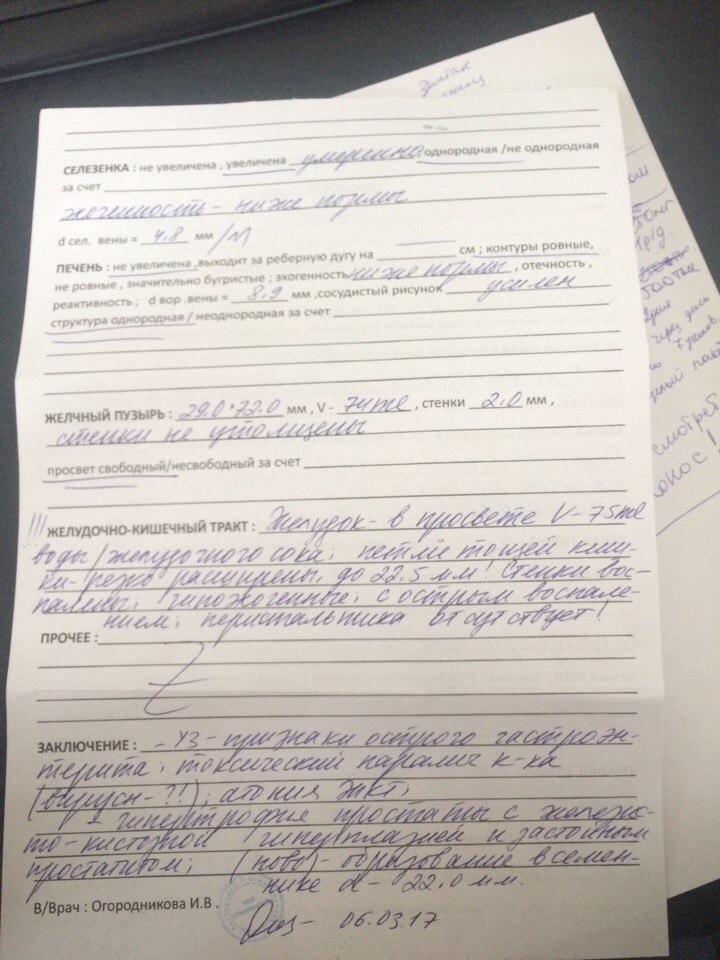 СЕЛЕЗЕНКА : не увеличена , увеличена умеренно, однородная /не однородная
за счет
эхогенность - ниже нормы
d сел. вены = 4.8 мм /N
ПЕЧЕНЬ : не увеличена ,выходит за реберную дугу на см ; контуры ровные,
не ровные , значительно бугристые ; эхогенность ниже нормы , отечность ,
реактивность ; d вор .вены = 8.9 мм ,сосудистый рисунок усилен
структура однородная / неоднородная за счет
ЖЕЛЧНЫЙ ПУЗЫРЬ : 29.0*72.0 мм , V - 74ml , стенки 2.0 мм ,
стенки не утолщены
просвет свободный/несвободный за счет
!!! ЖЕЛУДОЧНО-КИШЕЧНЫЙ ТРАКТ : Желудок - в просвете V - 75ml
воды/желудочного сока; петли тощей киш-
ки - резко расширены, до 22.5 мм! Стенки вос-
палены, гипоэхогенные, с острым воспале-
нием, перистальтика отсутствует!
ПРОЧЕЕ :
ЗАКЛЮЧЕНИЕ : УЗ - признаки острого гастроэн-
терита; токсический паралич к-ка
(вирусн - ?!); атония ЖКТ;
гипертрофия простаты с железис-
то-кистозной гиперплазией и застойным
простатитом; (ново) - образование в семен-
нике d - 22.0 мм.
В/Врач : Огородникова И.В .
06.03.17
золтак
50мг
1р/д.
через день
смотреть
понос!